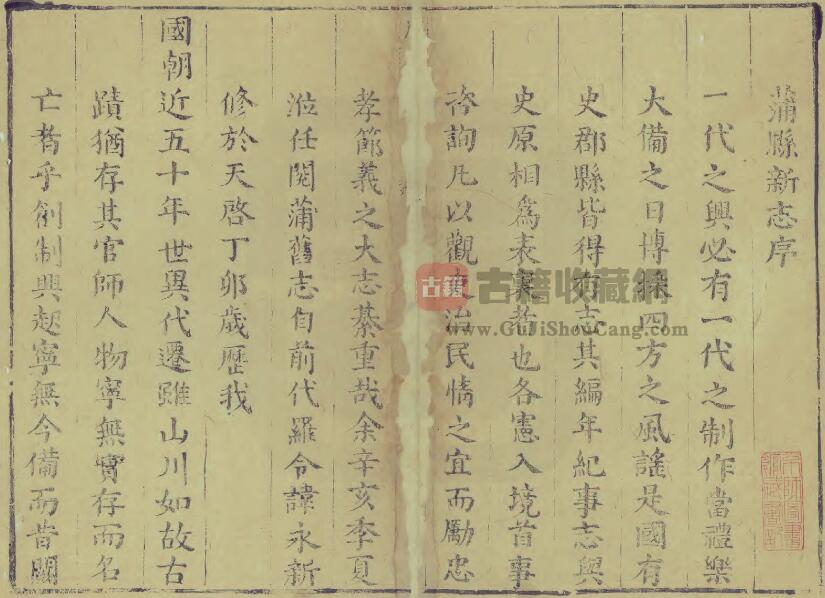 蒲縣新志序
一代之興必有一代之制作當禮樂
大備之日博採四方之風謠是國有
史郡縣皆得有志其編年紀事志與
史原相爲表裏者也各憲入境首事
咨詢凡以觀吏治民情之宜而勵忠
孝節義之大志綦重哉余辛亥季夏
涖任閱蒲舊志自前代羅令諱永新
修於天啓丁卯歲歷我
國朝近五十年世異代遷雖山川如故古
蹟猶存其官師人物寧無實存而名
亡者乎創制興起寧無今備而昔闕
古籍
古籍收藏網
www.GuJiShouCang.com